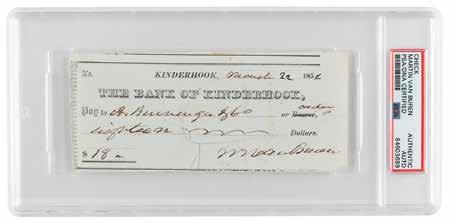 No. KINDERHOOK, March 22 1856
THE BANK OF KINDERHOOK,
Pay to & Co or Bearer, order
eighteen Dollars.
$ 18 M Van Buren
CHECK
MARTIN VAN BUREN
PSA/DNA CERTIFIED
AUTHENTIC
AUTO
84603689